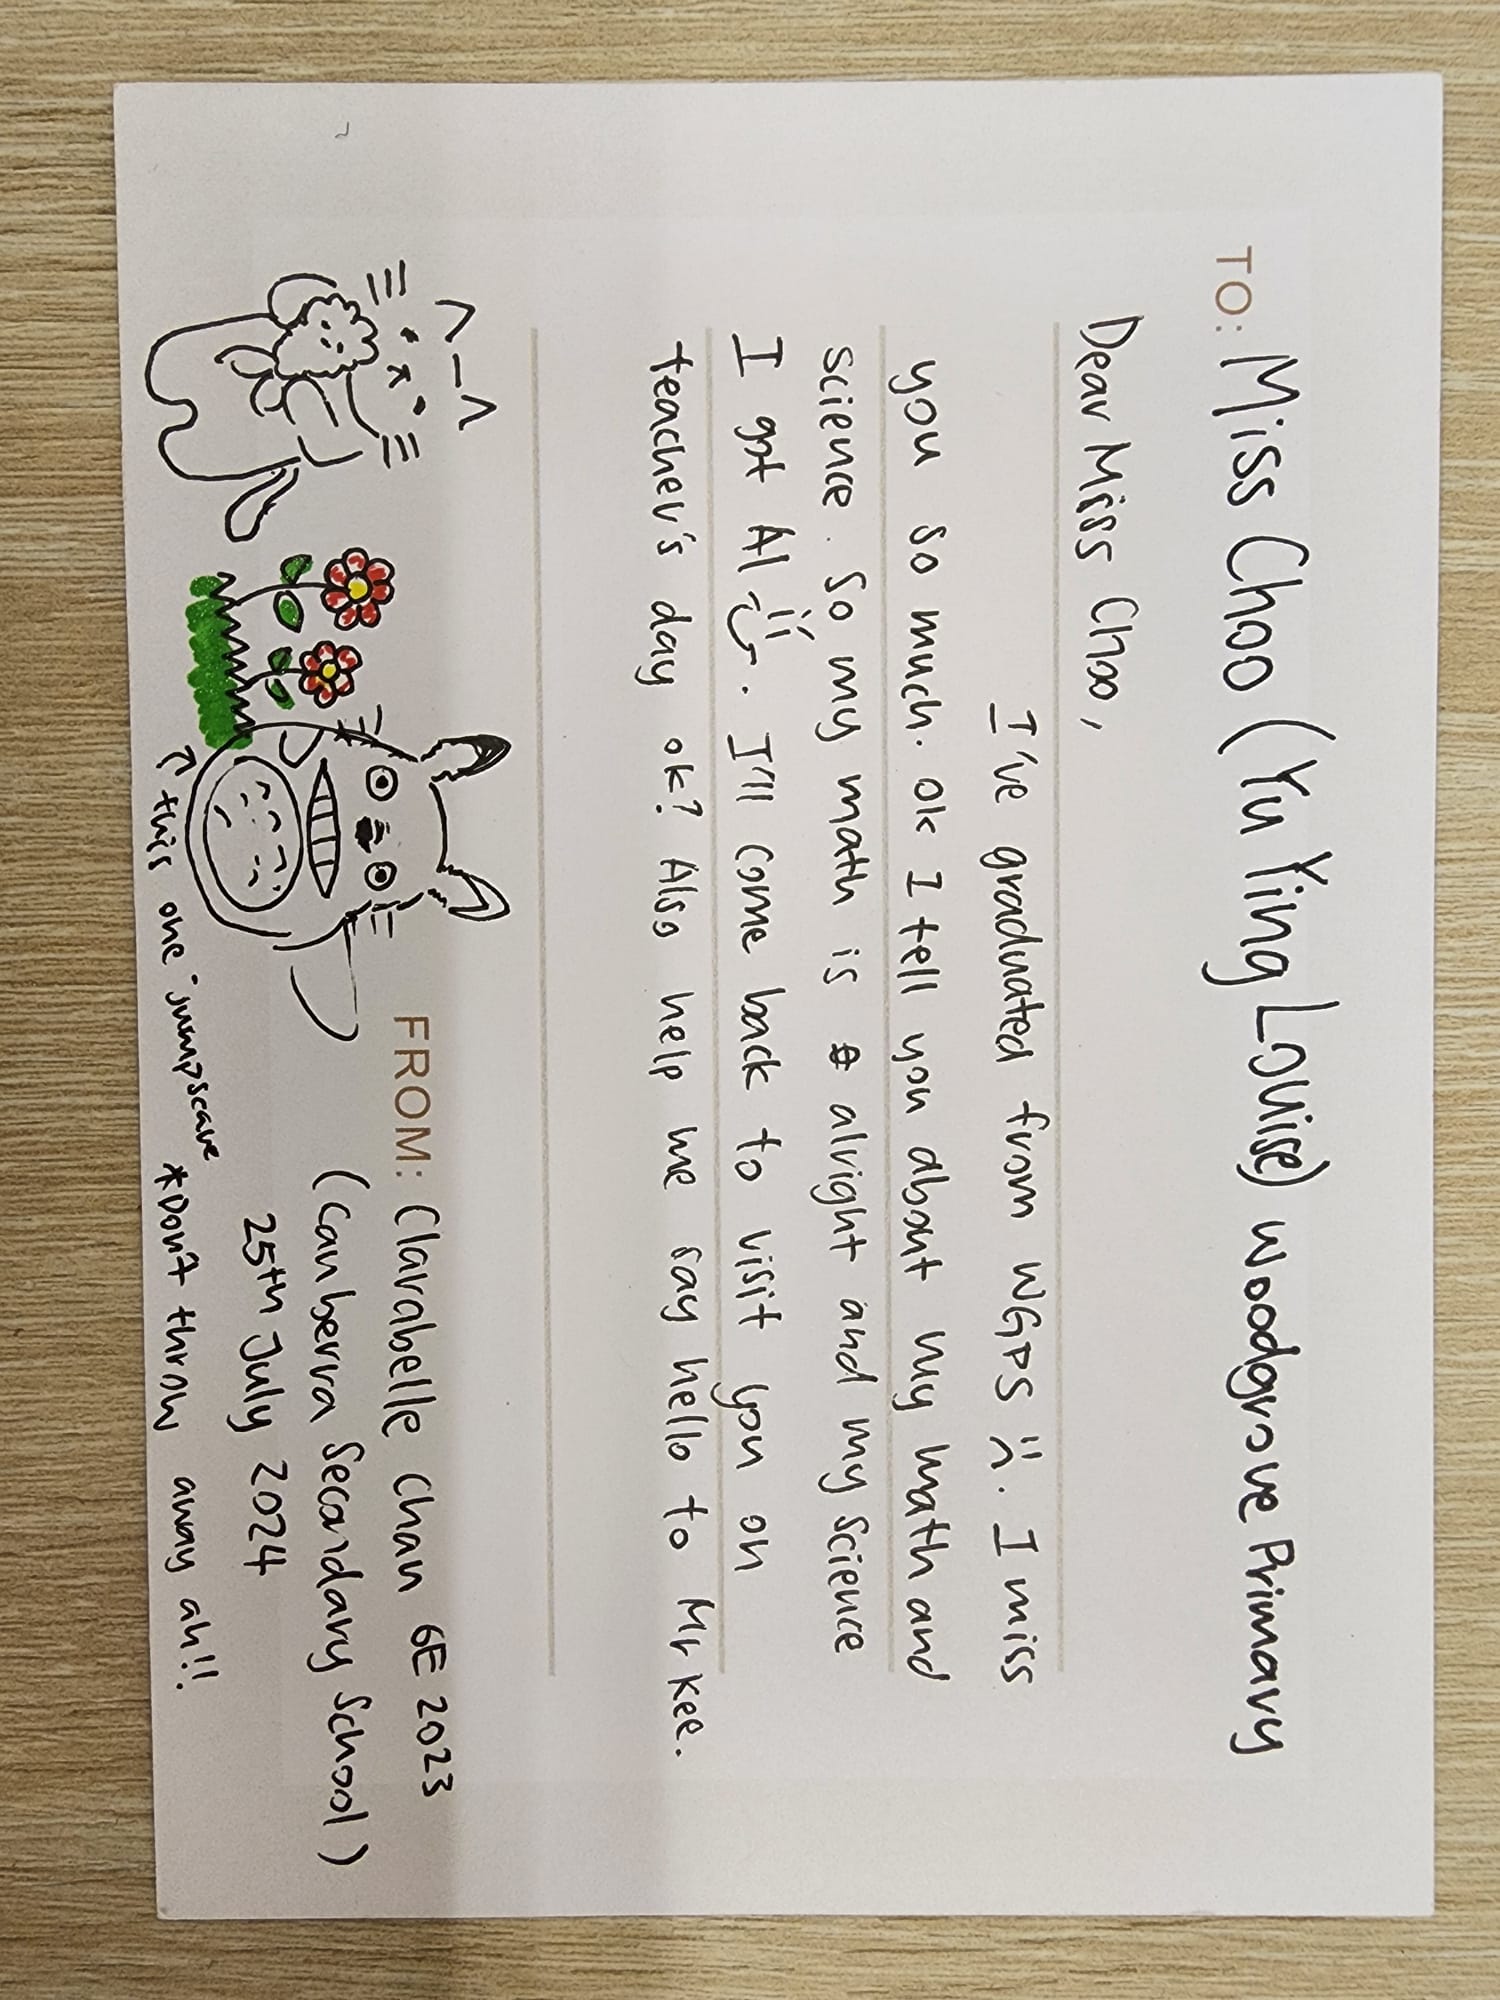 TO: Miss Choo (Yu Ying Louise) Woodgrove Primary
Dear Miss Choo,
I've graduated from WGPS :(. I miss
you so much. Ok I tell you about my math and
science. So my math is alright and my science
I got A1 :). I'll come back to visit you on
teacher's day ok? Also help me say hello to Mr Kee.
FROM: Clarabelle Chan 6E 2023
(Canberra Secondary School)
25th July 2024
this one jumpscare
*Don't throw away ah!!